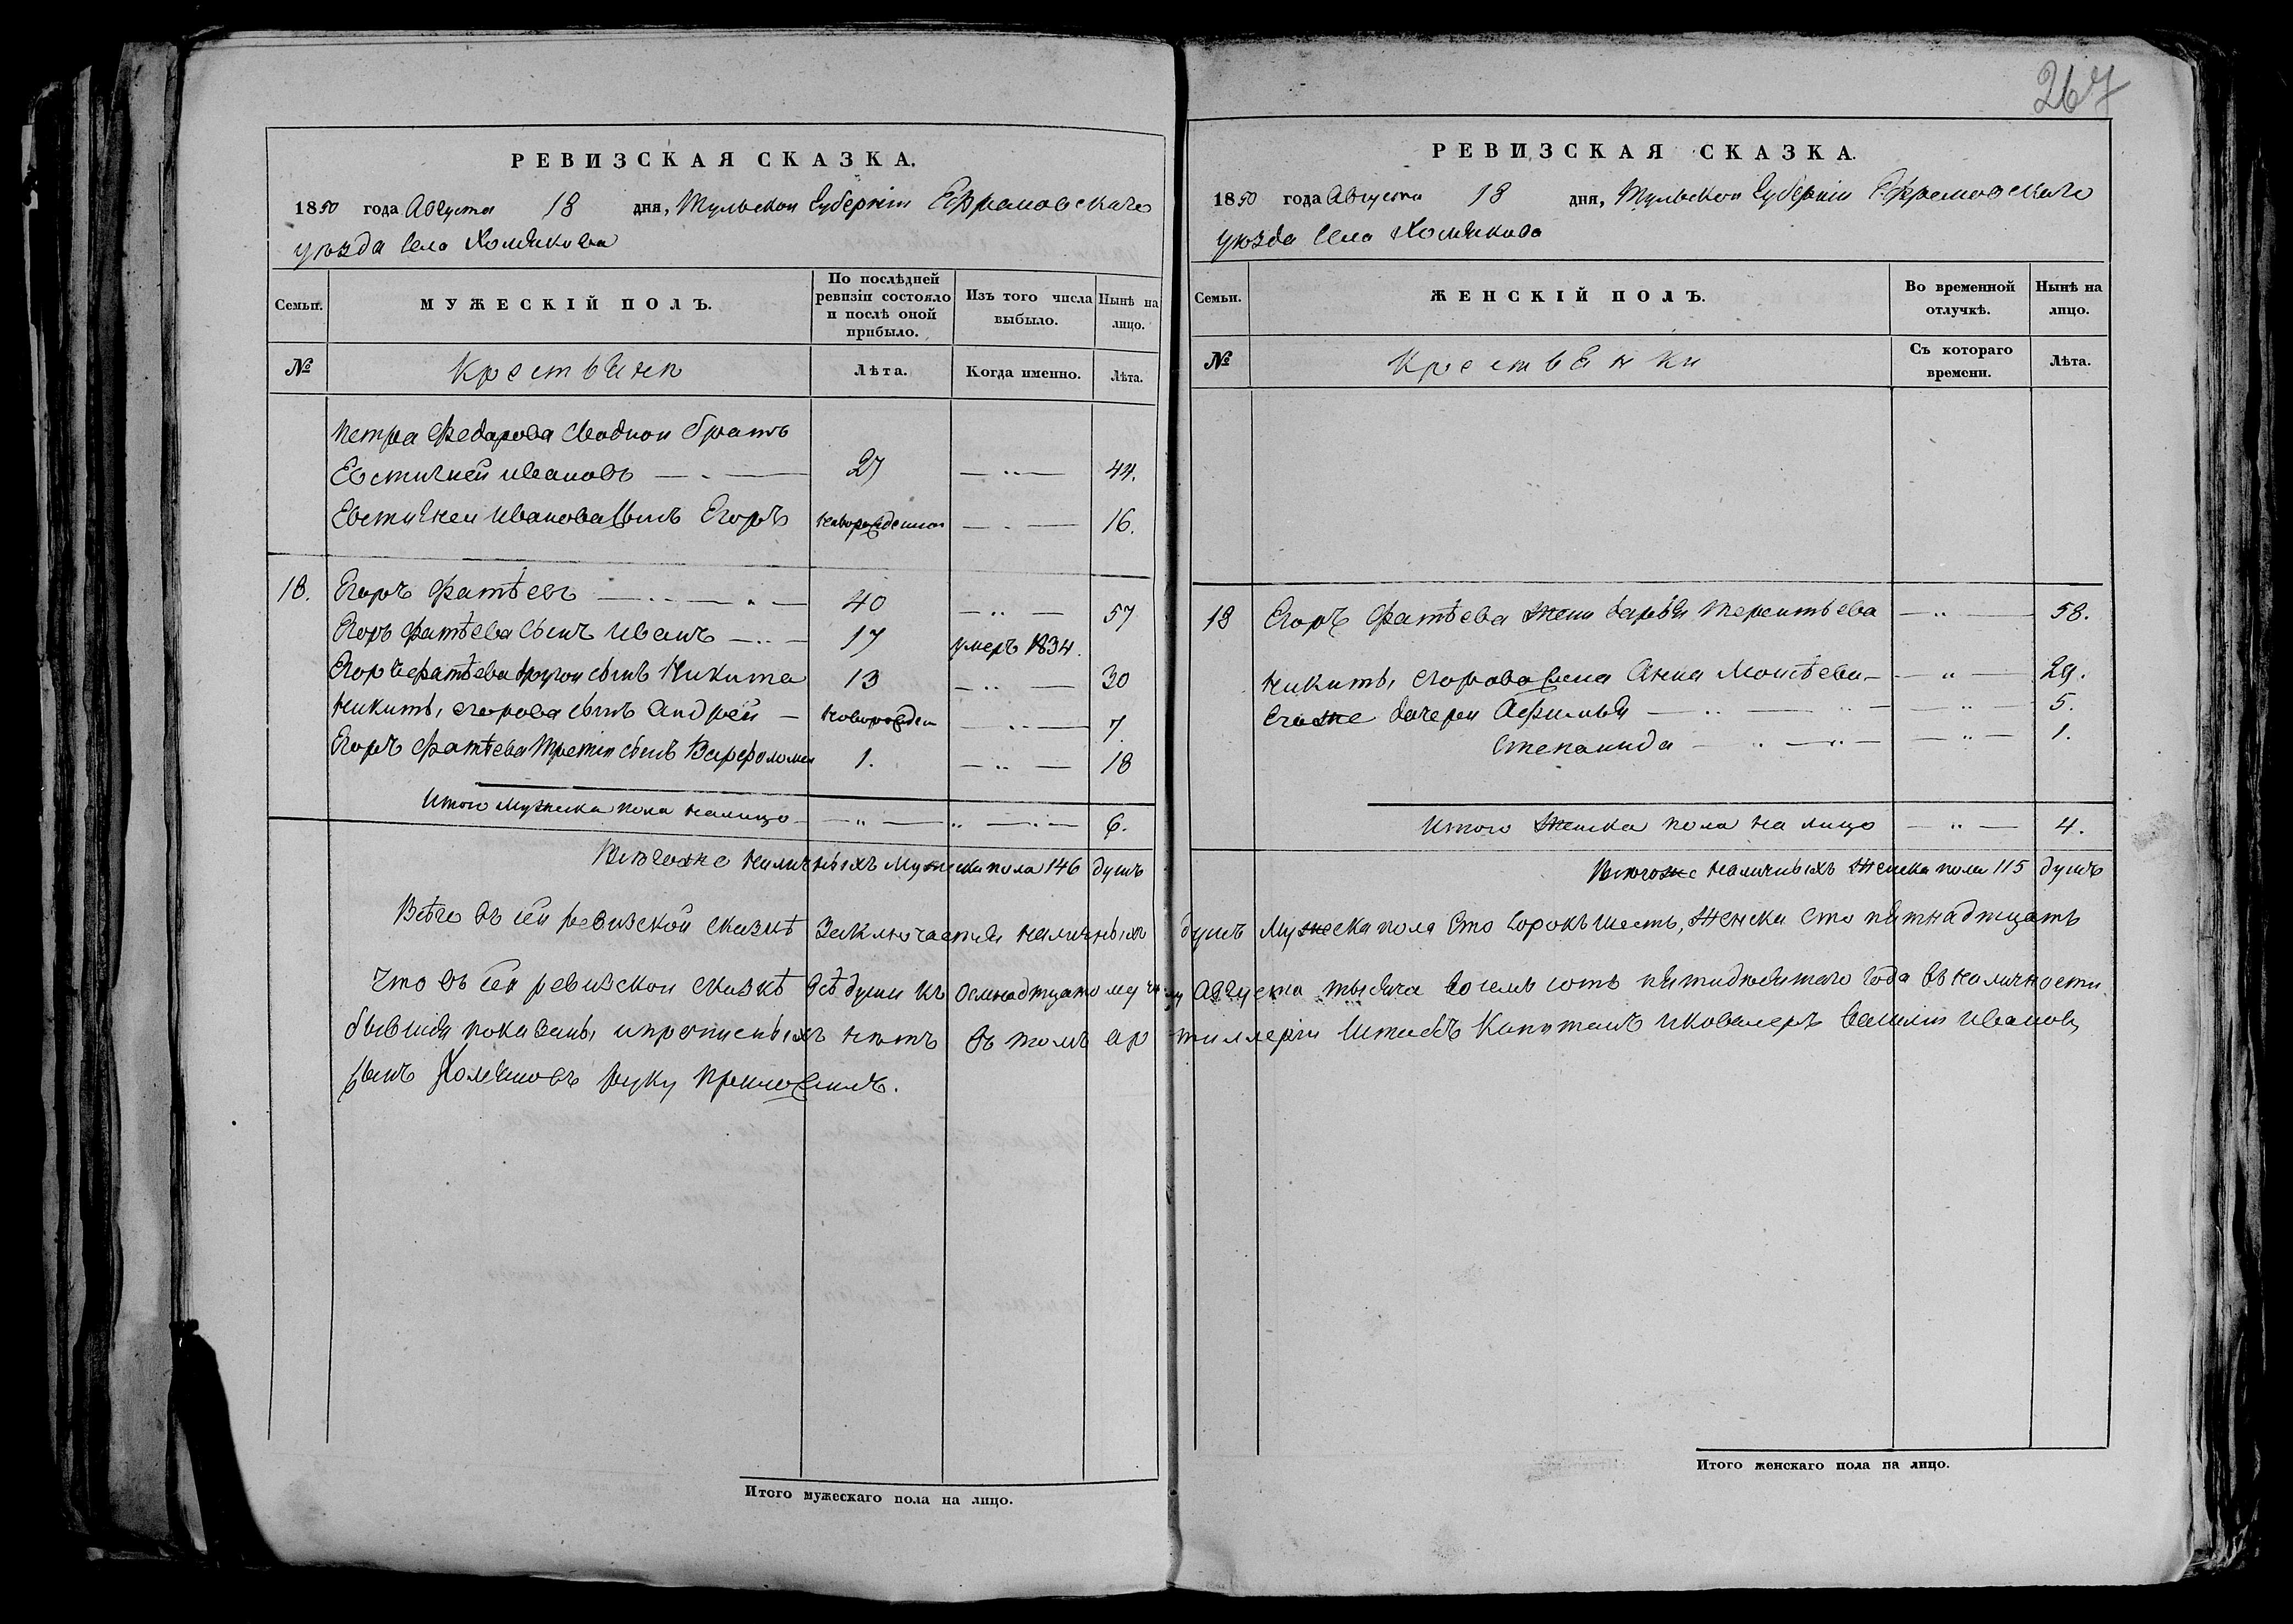 267
РЕВИЗСКАЯ СКАЗКА.
1850 года Августа 18 дня, Тульской Губернiи Ефремовскаго
уѣзда Села Хомякова
Семьи. МУЖЕСКIЙ ПОЛЪ. По послѣдней ревизiи состояло и послѣ оной прибыло. Изъ того числа выбыло. Нынѣ на лицо.
№ Крестьяне Лѣта. Когда именно. Лѣта.
Петра Федарова Сводной братъ
Евстигней Ивановъ 27 44.
Евстигнея Иванова Сынъ Егоръ новорожденной 16.
18. Егоръ Фатѣевъ 40 57
Егоръ Фатѣева Сынъ Иванъ 17 умеръ 1834.
Егоръ Фатѣева другой сынъ Никита 13 30
Никиты Егорова сынъ Андрей новорожден 7
Егоръ Фатѣева третiй сынъ Варфоломей 1. 18
Итого Мужеска пола налицо 6.
Всѣгоже наличныхъ мужеска пола 146 душъ
РЕВИЗСКАЯ СКАЗКА.
1850 года Августа 18 дня, Тульской Губернiи Ефремовскаго
уѣзда Села Хомякова
Семьи. ЖЕНСКIЙ ПОЛЪ. Во временной отлучкѣ. Нынѣ на лицо.
№ Крестьянки Съ котораго времени. Лѣта.
18 Егоръ Фатѣева жена дарья терентьева 58.
Никиты Егорова жена Анна Моисѣева 29.
Егоже дочери Афимья 5.
Степанида 1.
Итого женска пола на лицо 4.
Всѣгоже наличныхъ женска пола 115 душъ
Всѣго въ сей ревизской сказкѣ Заключается наличныхъ душъ Мужеска пола Сто Сорокъ шесть, женска сто пятнадтцать
Что въ сей ревизской сказкѣ всѣ души къ Осмнадтцатому числу Августа тысяча восемь сотъ пятидѣсятаго года въ наличности
бывшiя показаны и прописныхъ нѣтъ въ томъ артиллерiи Штабсъ Капитанъ и кавалеръ Василiй Ивановъ
Сынъ Хомяковъ руку приложилъ.
Итого мужескаго пола на лицо.
Итого женскаго пола на лицо.